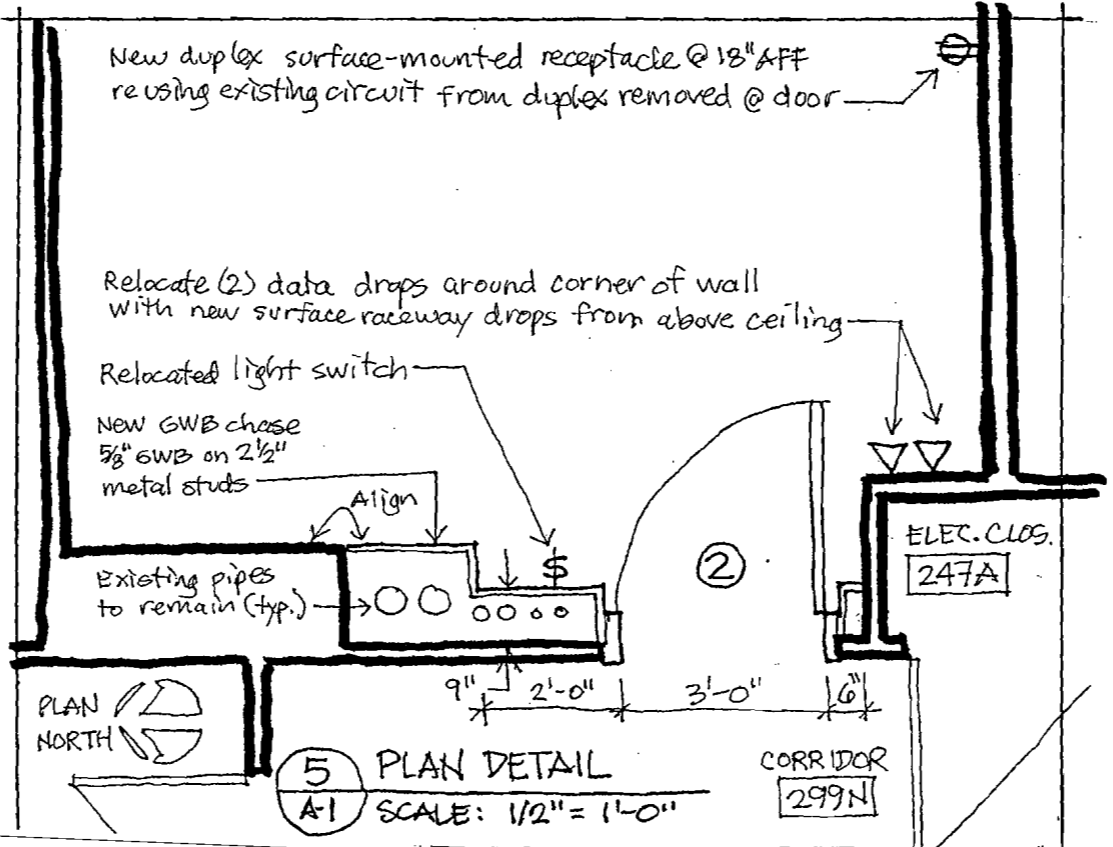 New duplex surface-mounted receptacle @ 18" AFF
reusing existing circuit from duplex removed @ door
Relocate (2) data drops around corner of wall
with new surface raceway drops from above ceiling
Relocated light switch
New GWB chase
5/8" GWB on 2 1/2"
metal studs
Align
$
2
ELEC. CLOS.
247A
Existing pipes
to remain (typ.)
9"
2'-0"
3'-0"
6"
PLAN
NORTH
5
A-1
PLAN DETAIL
SCALE: 1/2" = 1'-0"
CORRIDOR
299N